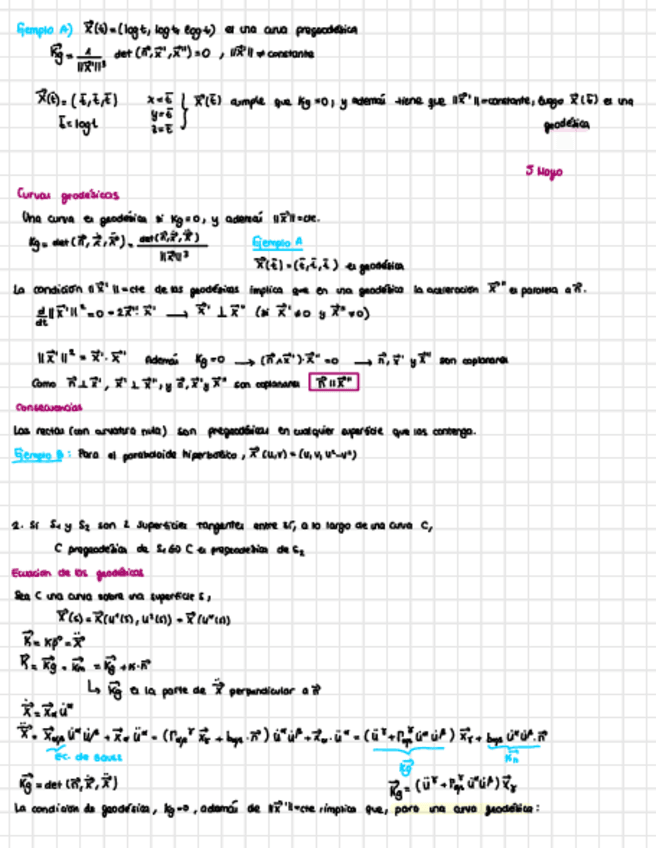 Ejemplo A) X⃗(t) = (log t, log t, log t) es una curva pregeodésica
K⃗g = 1/‖X⃗'‖³ det(n⃗, X⃗', X⃗'') = 0 , ‖X⃗'‖ ≠ constante
X⃗(t̄) = (t̄, t̄, t̄) x = t̄ y = t̄ z = t̄ } X⃗(t̄) cumple que Kg = 0, y además tiene que ‖X⃗'‖ = constante, luego X⃗(t̄) es una
t̄ = log t geodésica
5 Mayo
Curvas geodésicas
Una curva es geodésica si Kg = 0, y además ‖X⃗'‖ = cte.
Kg = det(n⃗, Ẋ, Ẍ) = det(n⃗, X⃗', X⃗'')/‖X⃗'‖³ Ejemplo A
X⃗(t̄) = (t̄, t̄, t̄) es geodésica
La condición ‖X⃗'‖ = cte de las geodésicas implica que en una geodésica la aceleración X⃗'' es paralela a n⃗.
d/dt ‖X⃗'‖² = 0 = 2X⃗'' X⃗' → X⃗' ⊥ X⃗'' (si X⃗' ≠ 0 y X⃗'' ≠ 0)
‖X⃗'‖² = X⃗' · X⃗' Además Kg = 0 → (n⃗ ∧ X⃗') · X⃗'' = 0 → n⃗, X⃗' y X⃗'' son coplanarios
Como n⃗ ⊥ X⃗', X⃗' ⊥ X⃗'', y n⃗, X⃗' y X⃗'' son coplanarios n⃗ ∥ X⃗''
Consecuencias
Las rectas (con curvatura nula) son pregeodésicas en cualquier superficie que las contenga.
Ejemplo B: Para el paraboloide hiperbólico, X⃗(u,v) = (u, v, u²-v²)
2. Si S₁ y S₂ son 2 superficies tangentes entre sí, a lo largo de una curva C,
C pregeodésica de S₁ ⇔ C es pregeodésica de S₂
Ecuación de las geodésicas
Sea C una curva sobre una superficie S,
X⃗(s) = X⃗(u¹(s), u²(s)) = X⃗(uᵅ(s))
K⃗ = Kρ⃗ = Ẍ
K⃗ = K⃗g + K⃗n = K⃗g + Kn · n⃗
↳ K⃗g es la parte de Ẍ perpendicular a n⃗
Ẋ = X⃗α u̇ᵅ
Ẍ = X⃗αβ u̇ᵅ u̇ᵝ + X⃗α üᵅ = (Γαβᵞ X⃗γ + bαβ · n⃗) u̇ᵅ u̇ᵝ + X⃗α · üᵅ = (üᵞ + Γαβᵞ u̇ᵅ u̇ᵝ) X⃗γ + bαβ u̇ᵅ u̇ᵝ · n⃗
ec. de Gauss K⃗g K⃗n
K⃗g = det(n⃗, Ẋ, Ẍ) K⃗g = (üᵞ + Γαβᵞ u̇ᵅ u̇ᵝ) X⃗γ
La condición de geodésica, Kg = 0, además de ‖X⃗'‖ = cte implica que, para una curva geodésica: